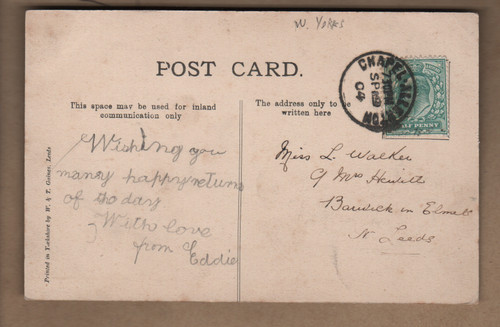 W. YORKS
POST CARD.
This space may be used for inland
communication only
The address only to
written here
CHAPEL ALLERTON
SP
04
HALFPENNY
Wishing you
many happy returns
of the day
With love
from Eddie
Miss L. Walker
Mrs Hewitt
Barwick in Elmet
N Leeds
Printed in Yorkshire by W. & T. Gaines, Leeds